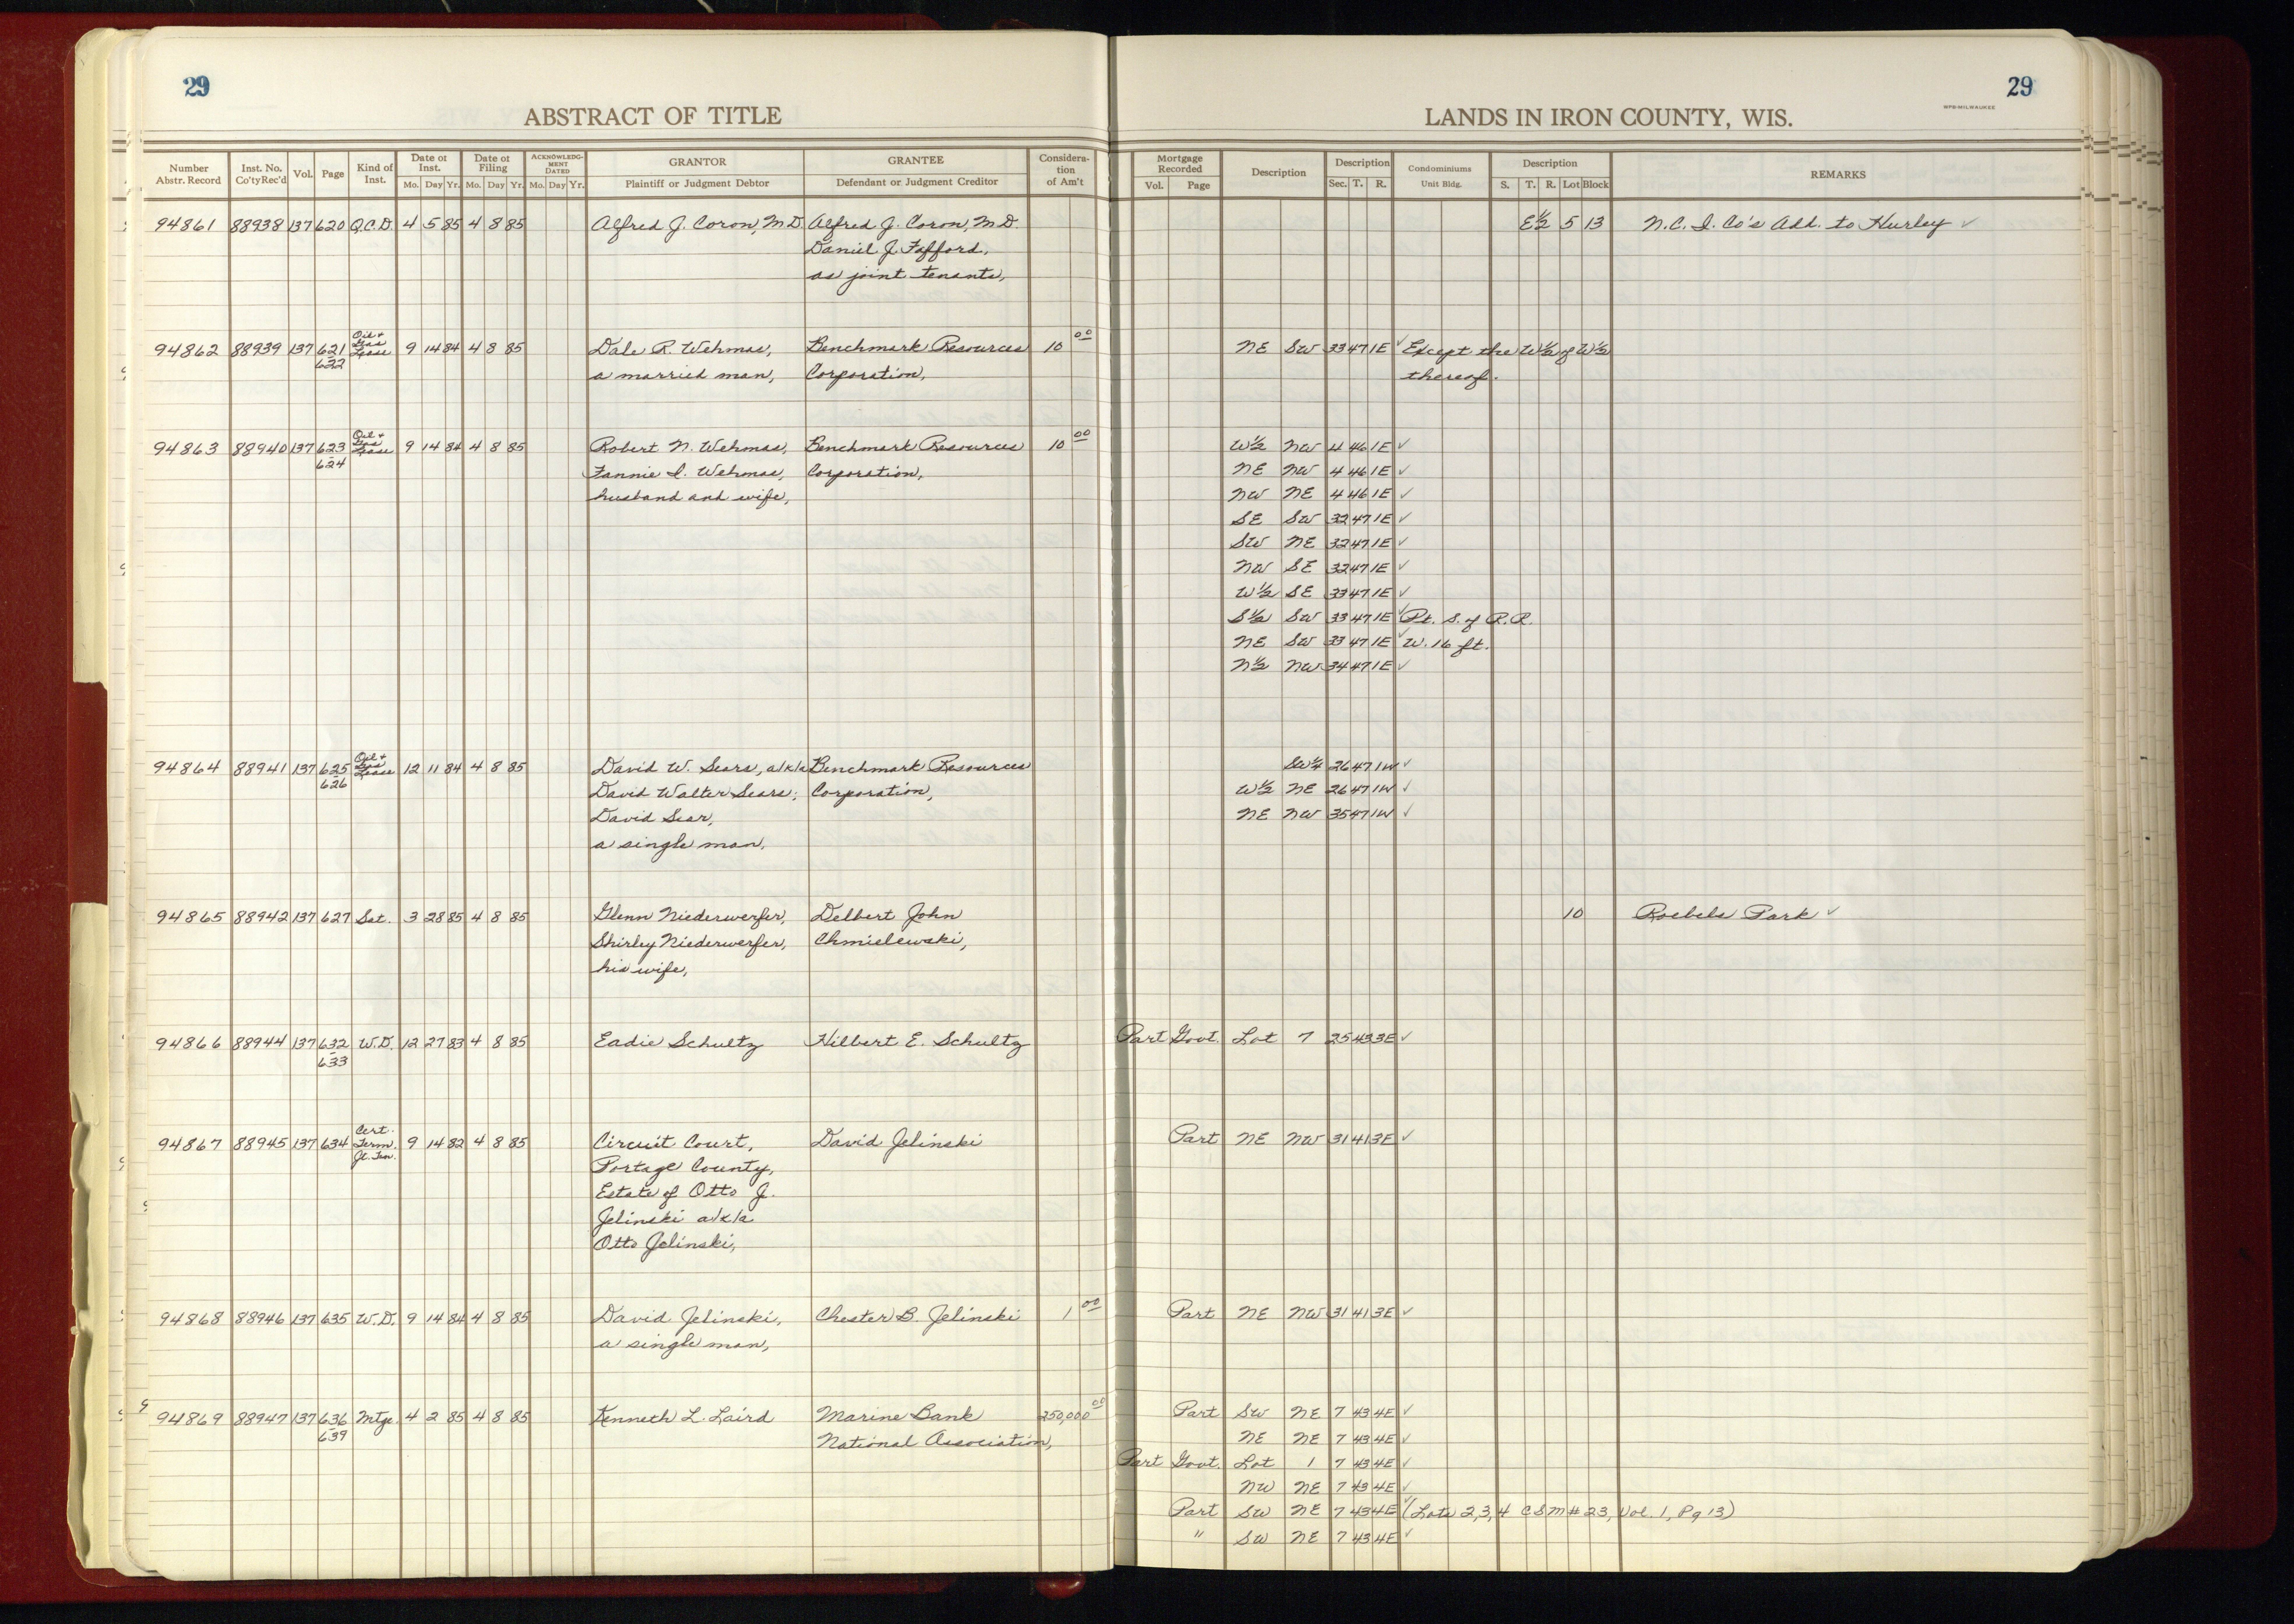 29
ABSTRACT OF TITLE
Number Abstr. Record | Inst. No. Co'ty Rec'd | Vol. | Page | Kind of Inst. | Date of Inst. Mo. Day Yr. | Date of Filing Mo. Day Yr. | ACKNOWLEDGMENT DATED Mo. Day Yr. | GRANTOR Plaintiff or Judgment Debtor | GRANTEE Defendant or Judgment Creditor | Consideration of Am't
29
WPB-MILWAUKEE
LANDS IN IRON COUNTY, WIS.
Mortgage Recorded Vol. Page | Description | Description Sec. T. R. | Condominiums Unit Bldg. | Description S. T. R. Lot Block | REMARKS
94861 88938 137 620 Q.C.D. 4 5 85 4 8 85 Alfred J. Coron, M.D. Alfred J. Coron, M.D. E½ 5 13 N.C.I. Co's Add. to Hurley ✓
Daniel J. Fafford,
as joint tenants,
94862 88939 137 621-622 Oil + Gas Lease 9 14 84 4 8 85 Dale R. Wehmas, Benchmark Resources 10 00 NE SW 33 47 1E ✓ Except the W½ of W½
a married man, Corporation, thereof.
94863 88940 137 623-624 Oil + Gas Lease 9 14 84 4 8 85 Robert N. Wehmas, Benchmark Resources 10 00 W½ NW 4 46 1E ✓
Fannie I. Wehmas, Corporation, NE NW 4 46 1E ✓
husband and wife, NW NE 4 46 1E ✓
SE SW 32 47 1E ✓
SW NE 32 47 1E ✓
NW SE 32 47 1E ✓
W½ SE 33 47 1E ✓
S½ SW 33 47 1E ✓ Pt. S. of R.R.
NE SW 33 47 1E ✓ W. 16 ft.
N½ NW 34 47 1E ✓
94864 88941 137 625-626 Oil + Gas Lease 12 11 84 4 8 85 David W. Sears, a/k/a Benchmark Resources SW¼ 26 47 1W ✓
David Walter Sears; Corporation, W½ NE 26 47 1W ✓
David Sear, NE NW 35 47 1W ✓
a single man,
94865 88942 137 627 Sat. 3 28 85 4 8 85 Glenn Niederwerfer, Delbert John 10 Roebels Park ✓
Shirley Niederwerfer, Chmielewski,
his wife,
94866 88944 137 632-633 W.D. 12 27 83 4 8 85 Eadie Schultz Hilbert E. Schultz Part Govt. Lot 7 25 43 3E ✓
94867 88945 137 634 Cert. Term. Jt. Ten. 9 14 82 4 8 85 Circuit Court, David Jelinski Part NE NW 31 41 3E ✓
Portage County,
Estate of Otto J.
Jelinski a/k/a
Otto Jelinski,
94868 88946 137 635 W.D. 9 14 84 4 8 85 David Jelinski, Chester B. Jelinski 1 00 Part NE NW 31 41 3E ✓
a single man,
94869 88947 137 636-639 Mtge. 4 2 85 4 8 85 Kenneth L. Laird Marine Bank 250,000 00 Part SW NE 7 43 4E ✓
National Association, NE NE 7 43 4E ✓
Part Govt. Lot 1 7 43 4E ✓
NW NE 7 43 4E ✓
Part SW NE 7 43 4E ✓ (Lots 2, 3, 4 CSM #23, Vol. 1, Pg 13)
" SW NE 7 43 4E ✓